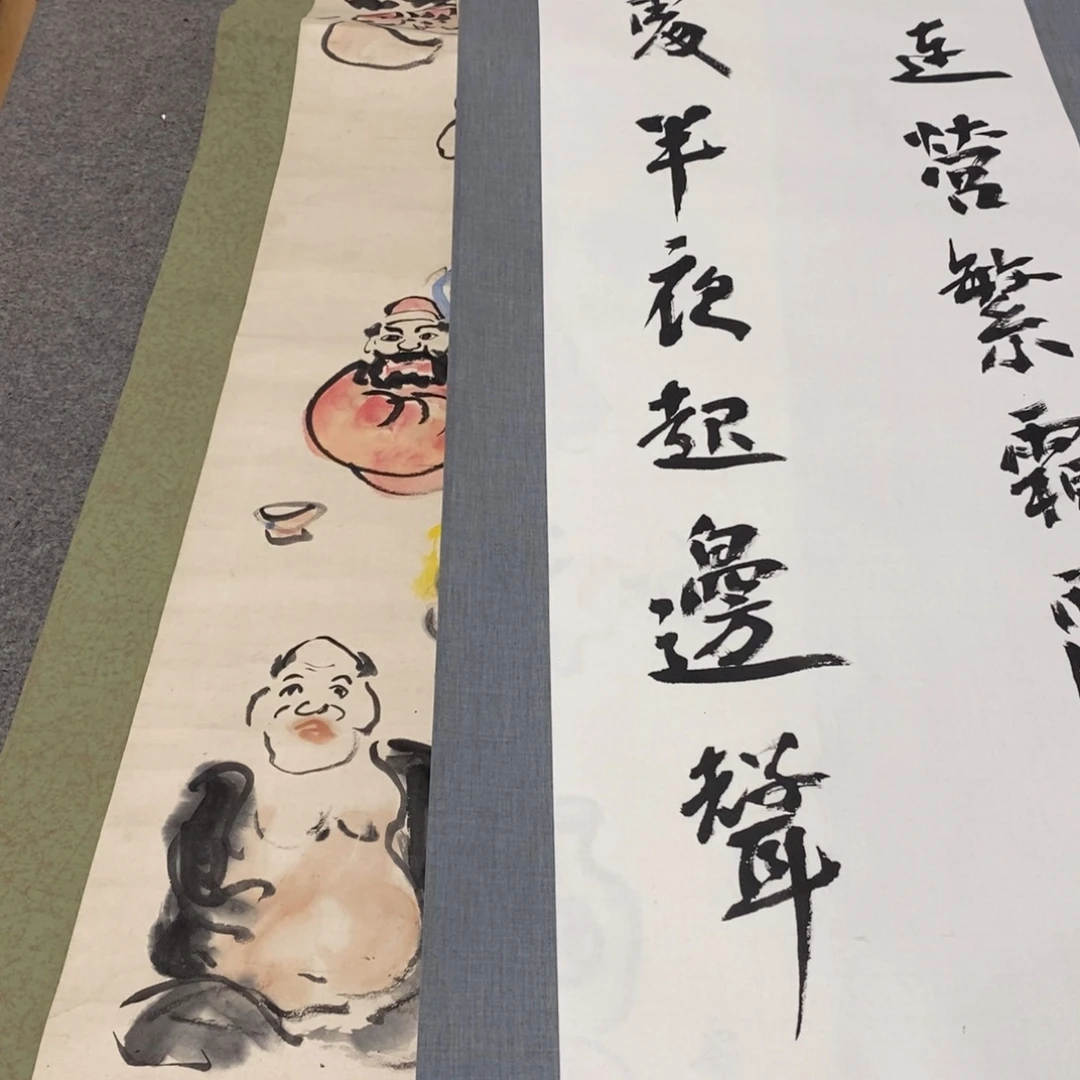 連營繁霜
半夜起邊聲